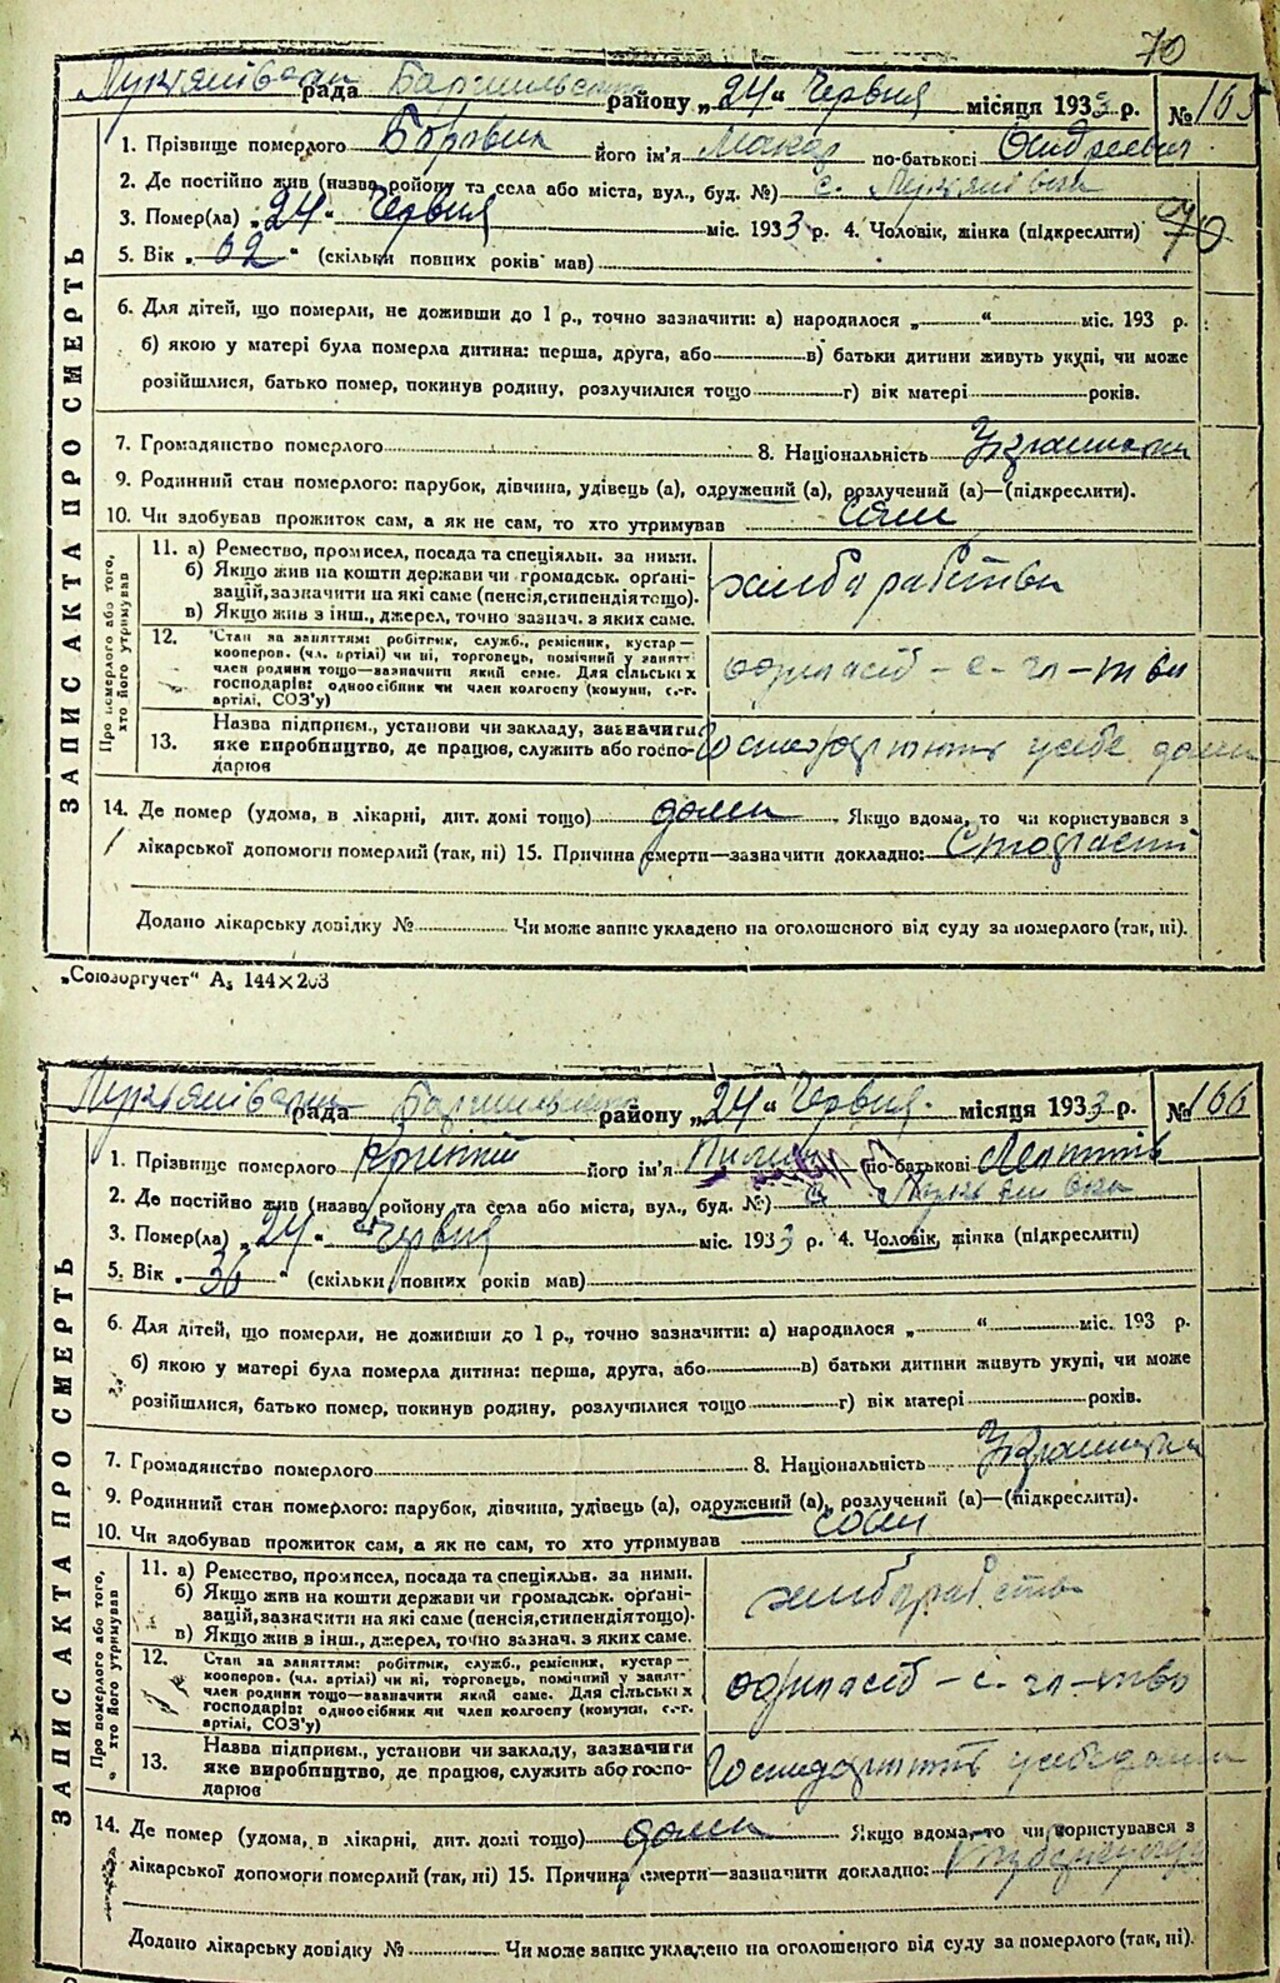 70
Лук'янівська рада Баришівського району „24" Червня місяця 1933 р. № 165
1. Прізвище померлого Боровик його ім'я Макар по-батькові Андреевич
2. Де постійно жив (назва ройону та села або міста, вул., буд. №) с. Лук'янівка
3. Помер(ла) „24" Червня міс. 1933 р. 4. Чоловік, жінка (підкреслити) 70
5. Вік „ 62 " (скільки повних років мав)
6. Для дітей, що померли, не доживши до 1 р., точно зазначити: а) народилося „ " міс. 193 р.
б) якою у матері була померла дитина: перша, друга, або в) батьки дитини живуть укупі, чи може
розійшлися, батько помер, покинув родину, розлучилися тощо г) вік матері років.
7. Громадянство померлого 8. Національність Українець
9. Родинний стан померлого: парубок, дівчина, удівець (а), одружений (а), розлучений (а)—(підкреслити).
10. Чи здобував прожиток сам, а як не сам, то хто утримував сам
ЗАПИС АКТА ПРО СМЕРТЬ
Про померлого або того, хто його утримував
11. а) Ремество, промисел, посада та спеціяльн. за ними.
б) Якщо жив на кошти держави чи громадськ. орґані-
зацій, зазначити на які саме (пенсія, стипендія тощо).
в) Якщо жив з інш., джерел, точно зазнач. з яких саме.
хлібо рабство
12. Стан за заняттям: робітник, служб., ремісник, кустар—
кооперов. (чл. артілі) чи ні, торговець, помічний у занят-
член родини тощо—зазначити який саме. Для сільських
господарів: одноосібник чи член колгоспу (комуни, с.-г.
артілі, СОЗ'у)
одноасіб - с - гл - тво
13. Назва підприєм., установи чи закладу, зазначити
яке виробництво, де працює, служить або госпо-
дарює
Господарюють у себе дома
14. Де помер (удома, в лікарні, дит. домі тощо) дома. Якщо вдома, то чи користувався з
лікарської допомоги померлий (так, ні) 15. Причина смерти—зазначити докладно:
Додано лікарську довідку № Чи може запис укладено на оголошеного від суду за померлого (так, ні).
„Союзоргучет" А₅ 144×203
Лук'янівська рада Баришівського району „24" Червня місяця 1933 р. № 166
1. Прізвище померлого його ім'я Пилип по-батькові
2. Де постійно жив (назва ройону та села або міста, вул., буд. №) с. Лук'янівка
3. Помер(ла) „24" Червня міс. 1933 р. 4. Чоловік, жінка (підкреслити)
5. Вік „ 36 " (скільки повних років мав)
6. Для дітей, що померли, не доживши до 1 р., точно зазначити: а) народилося „ " міс. 193 р.
б) якою у матері була померла дитина: перша, друга, або в) батьки дитини живуть укупі, чи може
розійшлися, батько помер, покинув родину, розлучилися тощо г) вік матері років.
7. Громадянство померлого 8. Національність Українець
9. Родинний стан померлого: парубок, дівчина, удівець (а), одружений (а), розлучений (а)—(підкреслити).
10. Чи здобував прожиток сам, а як не сам, то хто утримував сам
ЗАПИС АКТА ПРО СМЕРТЬ
Про померлого або того, хто його утримував
11. а) Ремество, промисел, посада та спеціяльн. за ними.
б) Якщо жив на кошти держави чи громадськ. орґані-
зацій, зазначити на які саме (пенсія, стипендія тощо).
в) Якщо жив в інш., джерел, точно зазнач. з яких саме.
хліборабство
12. Стан за заняттям: робітник, служб., ремісник, кустар—
кооперов. (чл. артілі) чи ні, торговець, помічний у занят-
член родини тощо—зазначити який саме. Для сільських
господарів: одноосібник чи член колгоспу (комуни, с.-г.
артілі, СОЗ'у)
одноасіб - с. гл - тво
13. Назва підприєм., установи чи закладу, зазначити
яке виробництво, де працює, служить або госпо-
дарює
Господарюють у себе дома
14. Де помер (удома, в лікарні, дит. домі тощо) дома Якщо вдома, то чи користувався з
лікарської допомоги померлий (так, ні) 15. Причина смерти—зазначити докладно:
Додано лікарську довідку № Чи може запис укладено на оголошеного від суду за померлого (так, ні).